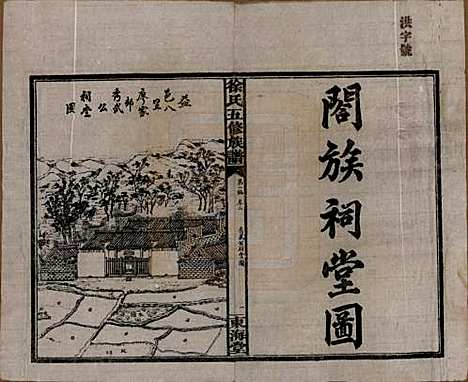 洪字號
閤族祠堂圖
徐氏五修族譜
東海堂
益邑八
里
廖家
郎
秀武
公
祠堂
圖